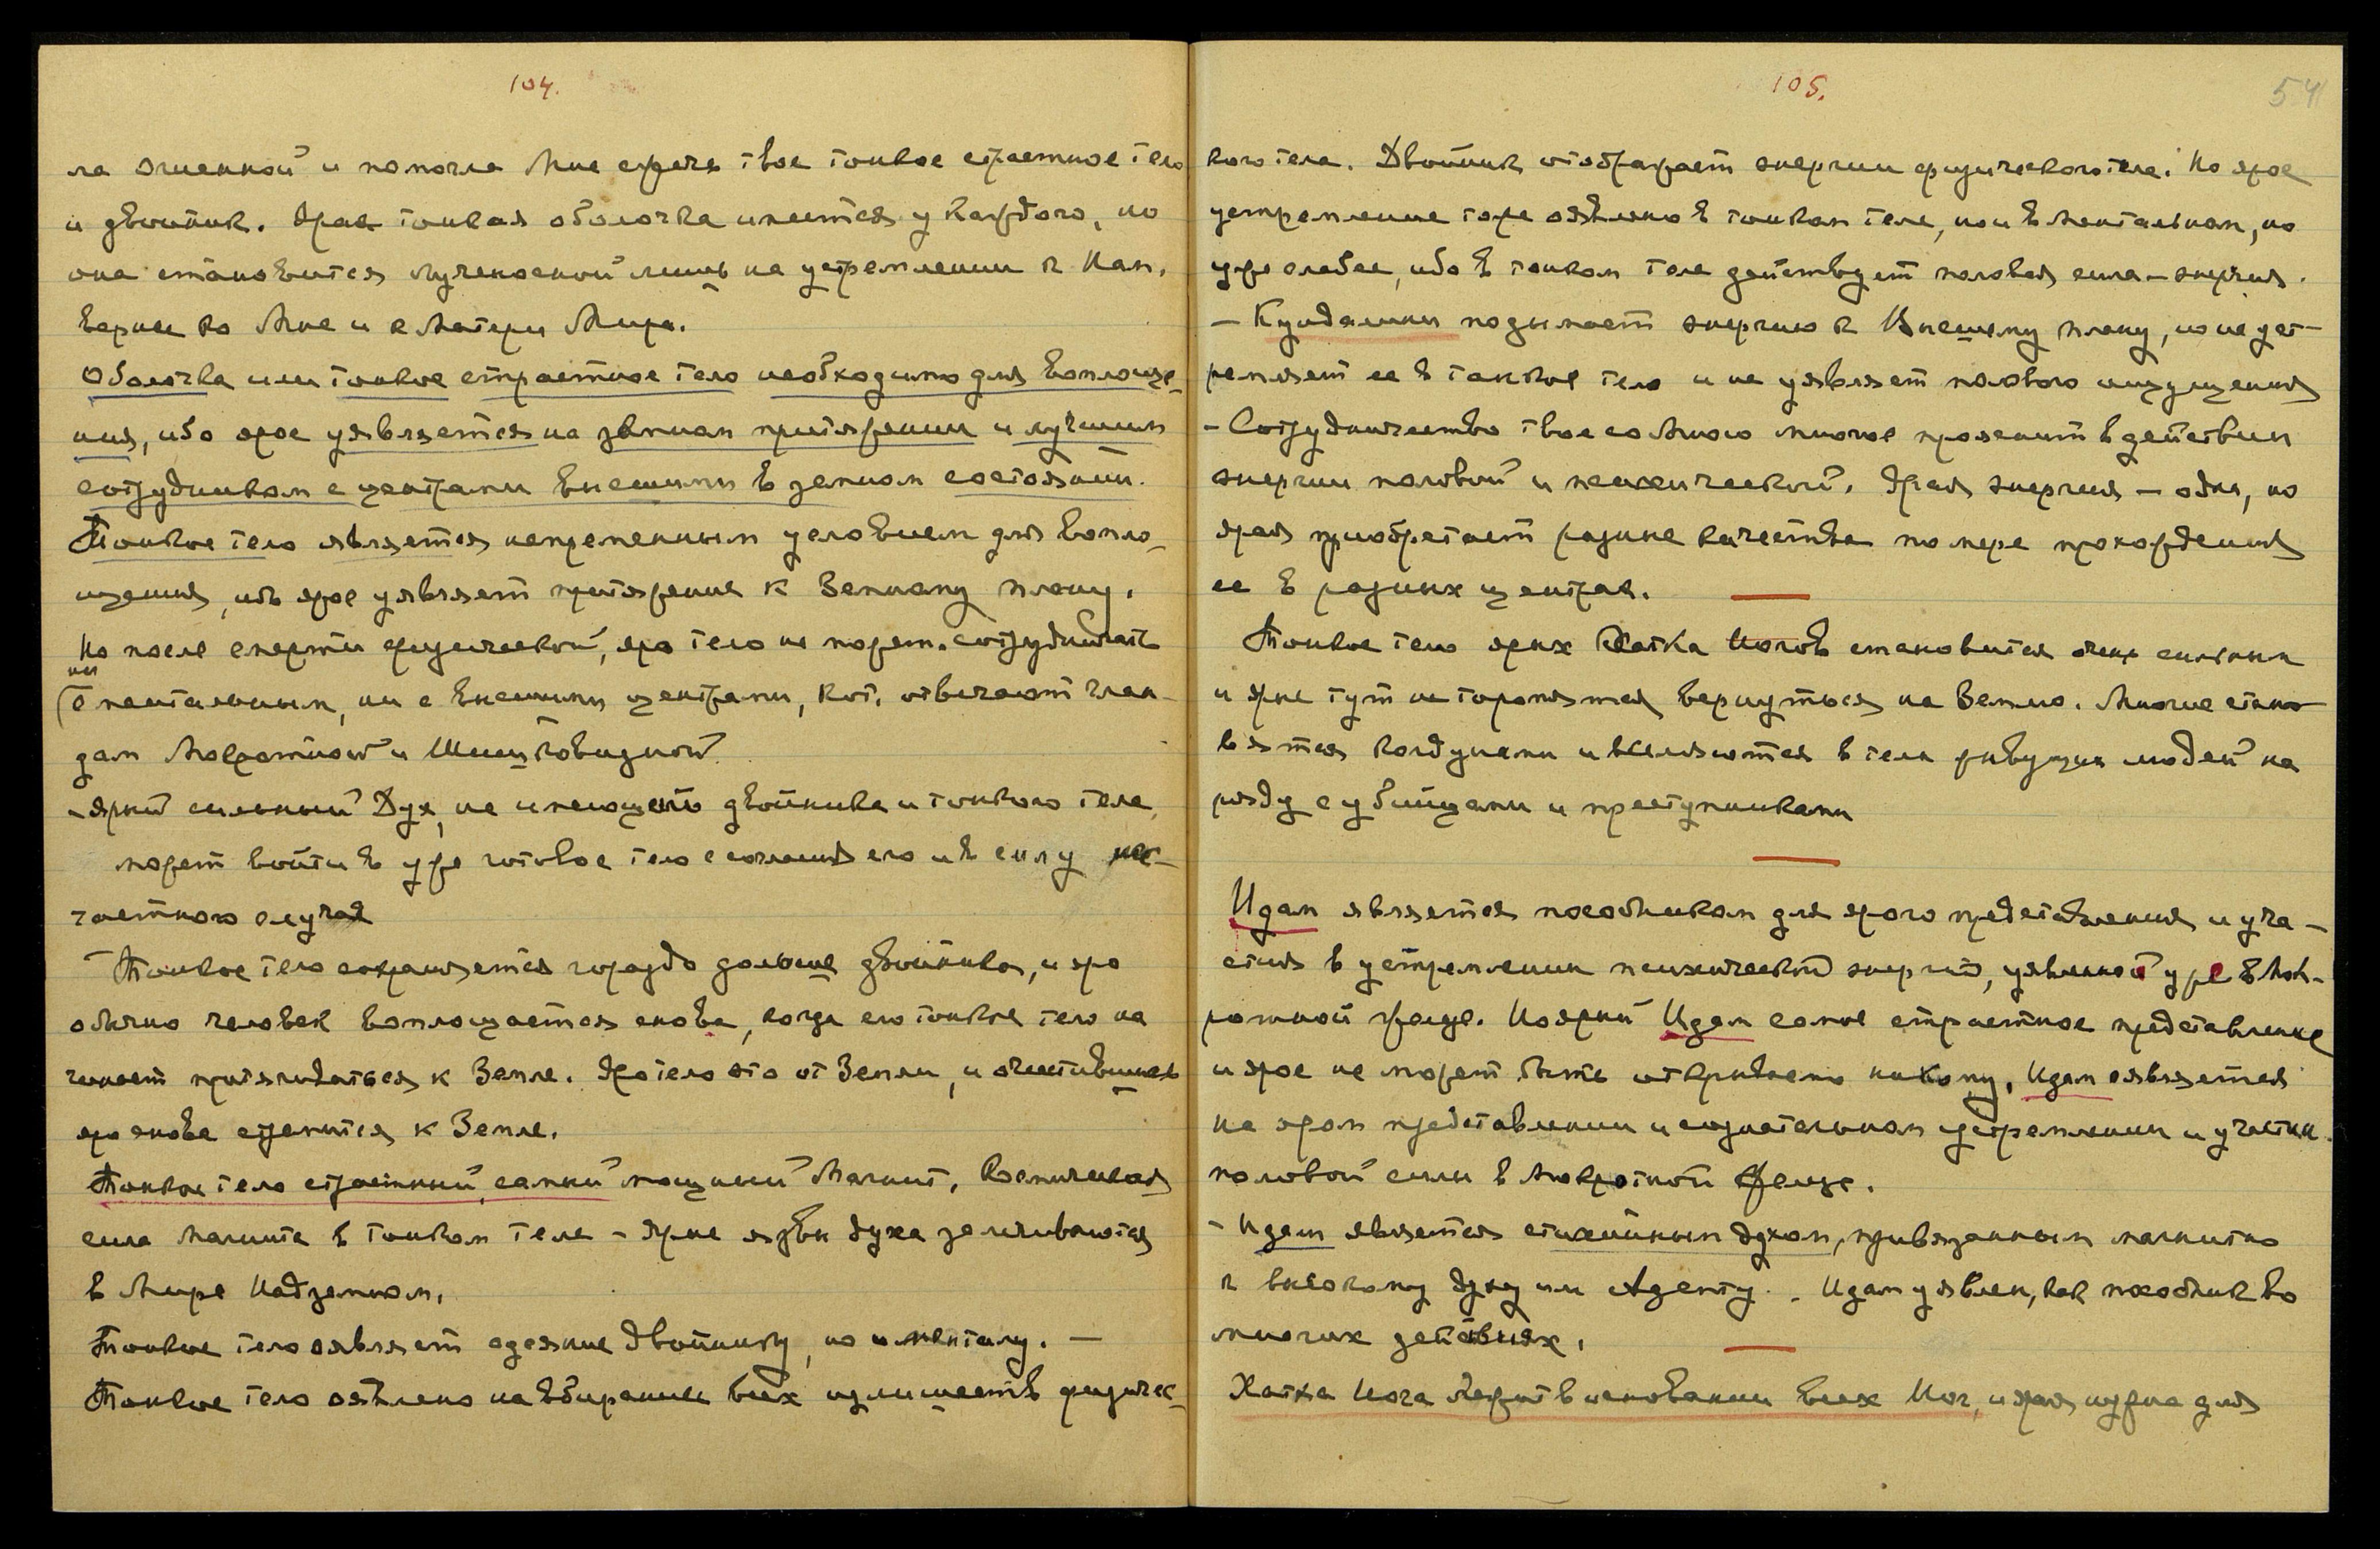 104.
ла огненной и помогла Мне сжечь твое тонкое страстное тело
и двойник. Ярая тонкая оболочка имеется у каждого, но
она становится лученосной лишь на устремлении к Нам,
вернее ко Мне и к Матери Мира.
Оболочка или тонкое страстное тело необходимо для воплоще-
ния, ибо ярое уявляется на земном притяжении и лучшим
сотрудником с центрами внешними в земном состоянии.
Тонкое тело является непременным условием для вопло-
щения, ибо ярое уявляет притяжение к Земному плану.
Но после смерти физической, яро тело не может сотрудничать
ни
(с ментальным, ни с внешними центрами, кот. отвечают глан-
дам Мокротной и Шишковидной.
- ярый сильный Дух, не имеющий двойника и тонкого тела,
может войти в уже готовое тело с согласия его и в силу нес-
частного случая
Тонкое тело сохраняется гораздо дольше двойника, и яро
обычно человек воплощается снова, когда его тонкое тело на
чинает притягиваться к Земле. Яро тело это от Земли, и очистившись
яро снова стремится к Земле.
Тонкое тело страстный, самый мощный Магнит, Космическая
сила магнита в тонком теле - ярые язвы духа залечиваются
в Мире Надземном.
Тонкое тело оявляет одеяние двойнику, но и менталу. —
Тонкое тело оявлено на вбирание всех излишеств физичес-
105.
54
кого тела. Двойник отображает энергии физического тела. Но ярое
устремление тоже оявлено в тонком теле, но и в ментальном, но
уже слабее, ибо в тонком теле действует половая сила - энергия.
- Кундалини подымает энергию к Внешнему плану, но не уст-
ремляет ее в тонкое тело и не уявляет полового ощущения
- Сотрудничество твое со Мною многое прояснит в действии
энергии половой и психической. Ярая энергия - одна, но
ярая приобретает разные качества по мере прохождения
ее в разных центрах.
Тонкое тело ярых Хатха Иогов становится очень сильным
и ярые тут не торопятся вернуться на Землю. Многие стано-
вятся колдунами и вселяются в тела живущих людей на
ряду с убийцами и преступниками
Идам является пособником для ярого представления и уча-
стия в устремлении психической энергии, уявленной уже в Мок-
ротной железе. Но ярый Идам самое страстное представление
и ярое не может быть открываемо никому, Идам оявляется
на яром представлении и сознательном устремлении и участии
половой силы в Мокротной железе.
- Идам является стихийным духом, привязанным магнитно
к высокому духу или Адепту. - Идам уявлен, как пособник во
многих действиях.
Хатха Иога лежит в основании всех Иог, и ярая нужна для